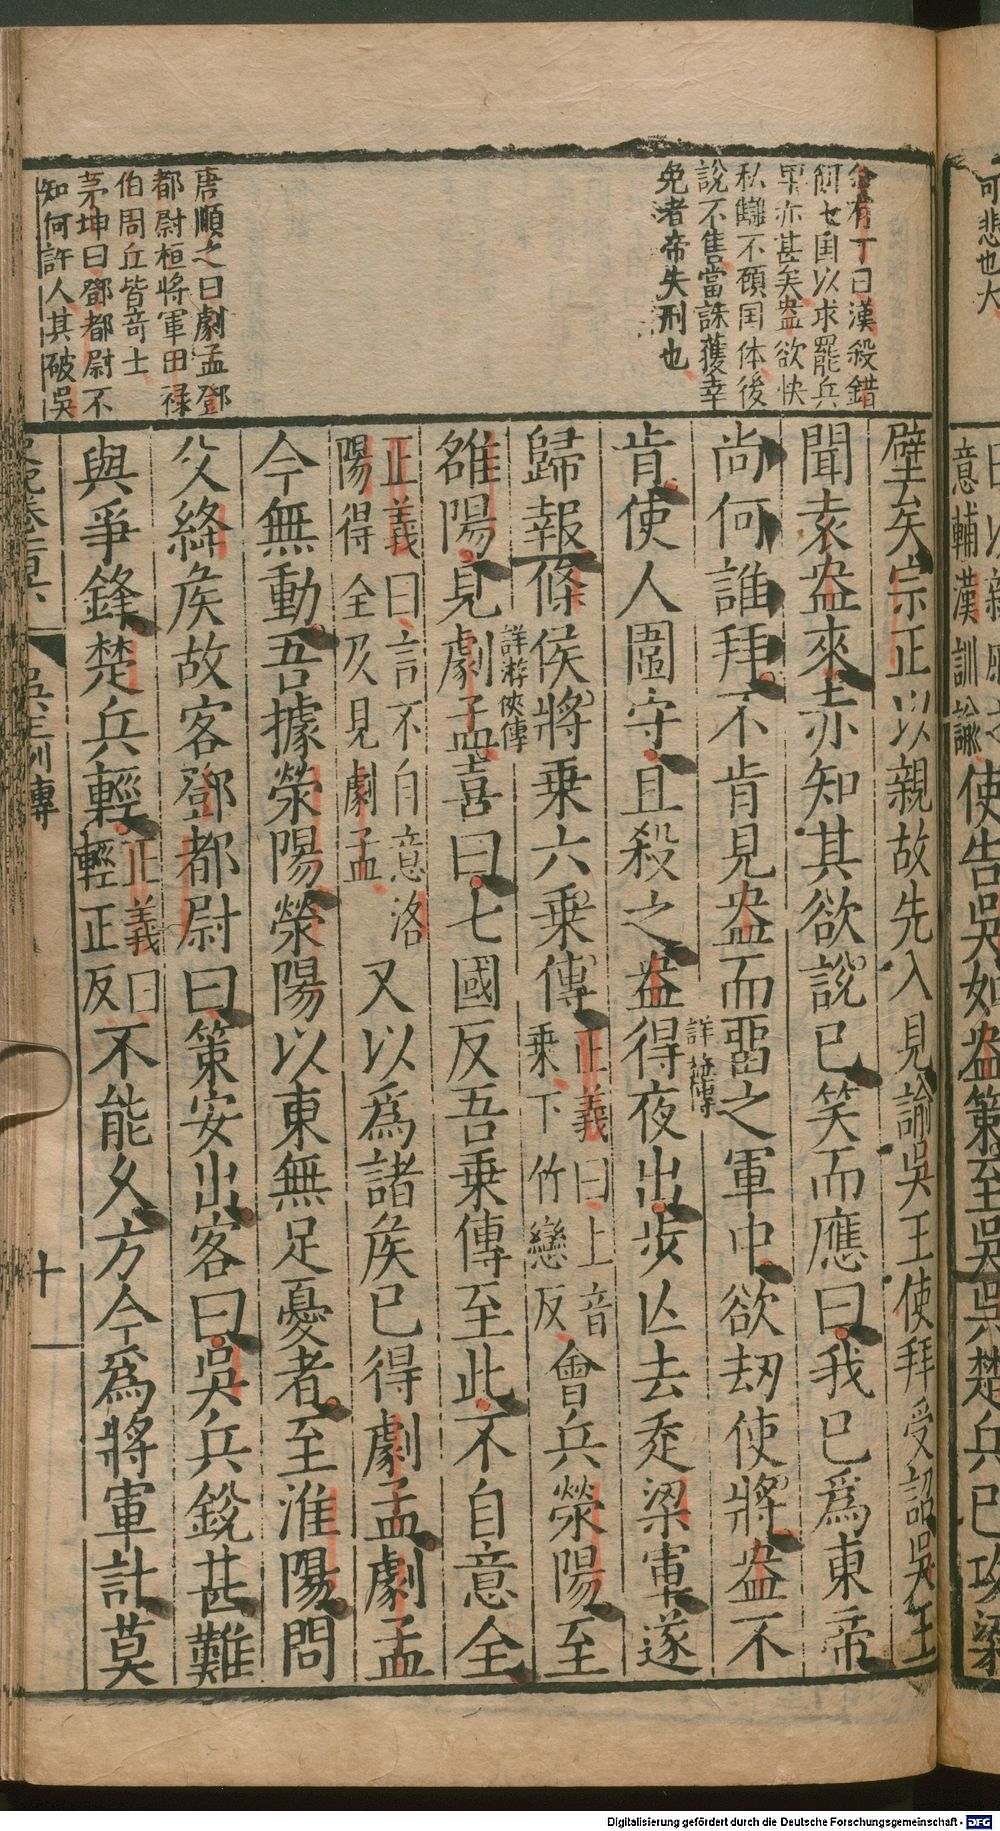 余有丁曰漢殺錯
餌七国以求罷兵
罪亦甚矣盎欲快
私讎不顧国体後
說不售當誅獲幸
免者帝失刑也
唐順之曰劇孟鄧
都尉桓將軍田祿
伯周丘皆竒士
茅坤曰鄧都尉不
知何許人其破吳
壁矣宗正以親故先入見諭吳王使拜受詔吳王
聞袁盎來亦知其欲說已笑而應曰我已爲東帝
尚何誰拜不肯見盎而畱之軍中欲刼使將盎不
詳盎傳
肯使人圍守且殺之盎得夜出步亾去走梁軍遂
歸報條侯將乘六乘傳
正義曰上音
乘下竹戀反
會兵滎陽至
雒陽見劇孟喜曰七國反吾乘傳至此不自意全
詳游俠傳
正義曰言不自意洛
陽得全及見劇孟
又以爲諸侯已得劇孟劇孟
今無動吾據滎陽滎陽以東無足憂者至淮陽問
父絳侯故客鄧都尉曰策安出客曰吳兵銳甚難
與爭鋒楚兵輕
正義曰
輕正反
不能久方今爲將軍計莫
吳王列傳
十
可悲也夫
意輔漢訓諭
使告吳如盎策至吳吳楚兵已攻梁
Digitalisierung gefördert durch die Deutsche Forschungsgemeinschaft - DFG